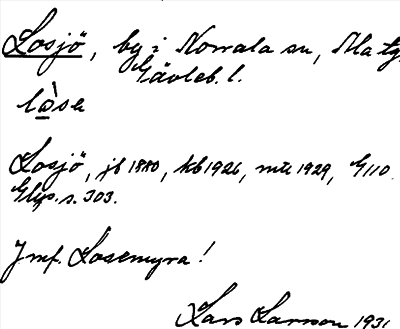 Losjö, by i Norrala sn, Ala tg
Gävleb. l.
lòse
Losjö, jb 1880, kb 1926, mtl 1929, G110
Glgs. s. 303.
Jmf. Losemyra!
Lars Larsson 1931